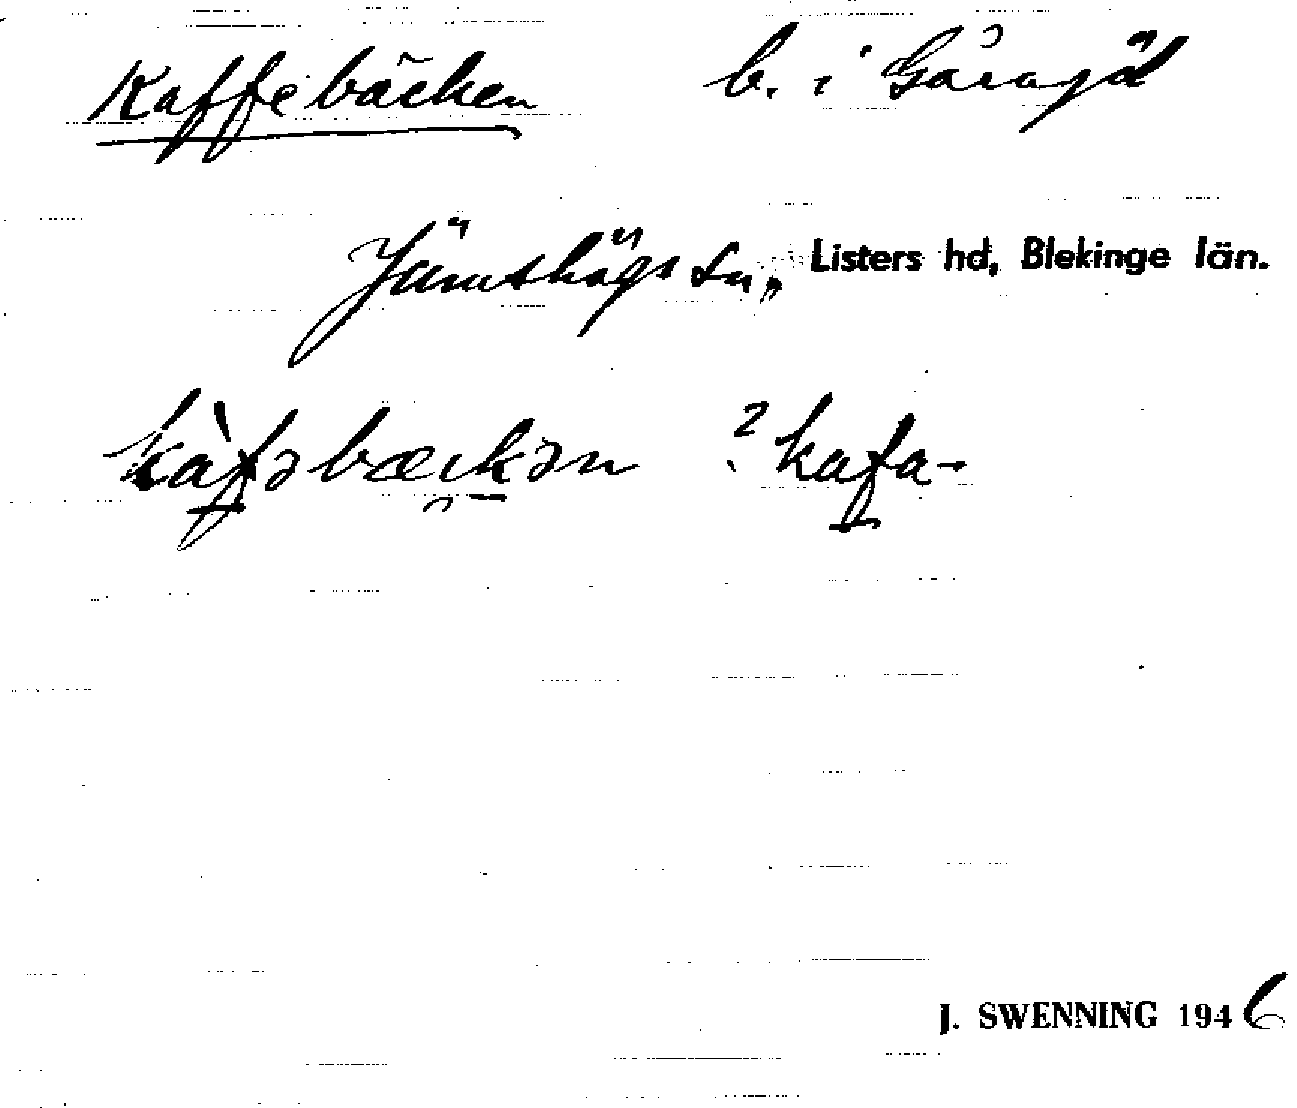 Kaffebäcken b. i Gårasjö
Jämshögs sn, Listers hd, Blekinge län.
kàfəbækən ? kafa-
J. SWENNING 1946